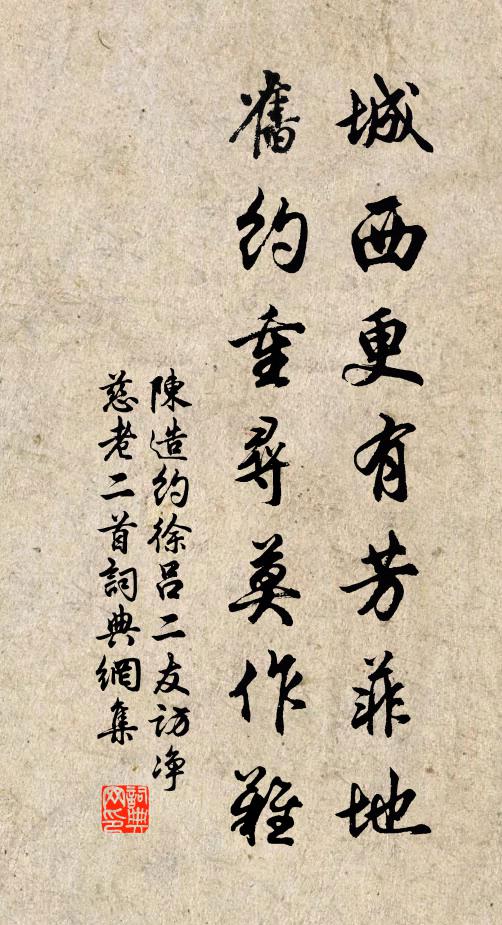 城西更有芳菲地
舊約重尋莫作難
陳造約徐呂二友訪淨
慈老二首詞典網集
詞典
网印